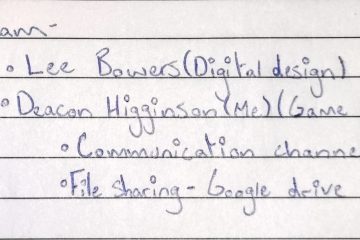 am-
• Lee Bowers (Digital design)
• Deacon Higginson (Me) (Game
• Communication channe
• File sharing - Google drive